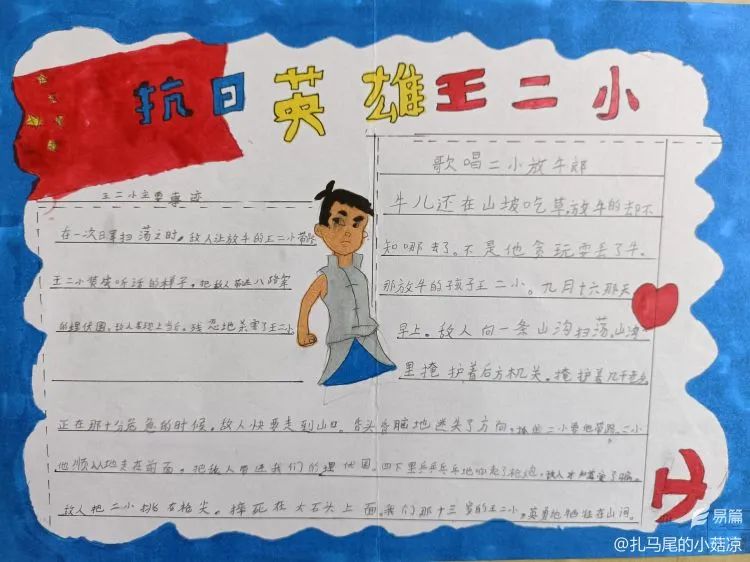 抗日英雄王二小
王二小主要事迹
在一次日军扫荡之时，敌人让放牛的王二小带路
王二小装成听话的样子，把敌人带进八路军
的埋伏圈，敌人知道上当后，残忍地杀害了王二小
歌唱二小放牛郎
牛儿还在山坡吃草，放牛的却不
知哪去了。不是他贪玩耍丢了牛，
那放牛的孩子王二小。九月十六那天
早上。敌人向一条山沟扫荡，山沟
里掩护着后方机关。掩护着几千老乡
正在那十分危急的时候，敌人快要走到山口。昏头昏脑地迷失了方向，抓住二小要他带路，二小
他顺从地走在前面，把敌人带进我们的埋伏圈，四下里乒乒乓乓地响起了枪炮，敌人才知道受了骗，
敌人把二小挑在枪尖，摔死在大石头上面，我们那十三岁的王二小，英勇地牺牲在山间。
易篇
@扎马尾的小菇凉